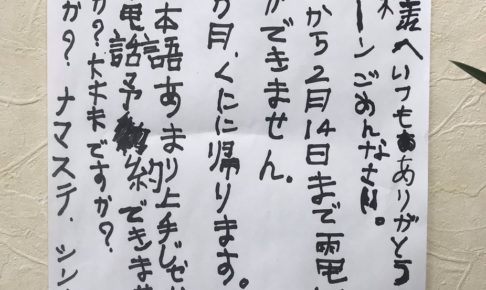 様へいつもありがとう
ーンごめんなさい。
から2月14日まで電
ができません。
か月、くにに帰ります。
本語あまり上手じゃ
電話予約できませ
か？大丈夫ですか？
か？ナマステ．シン